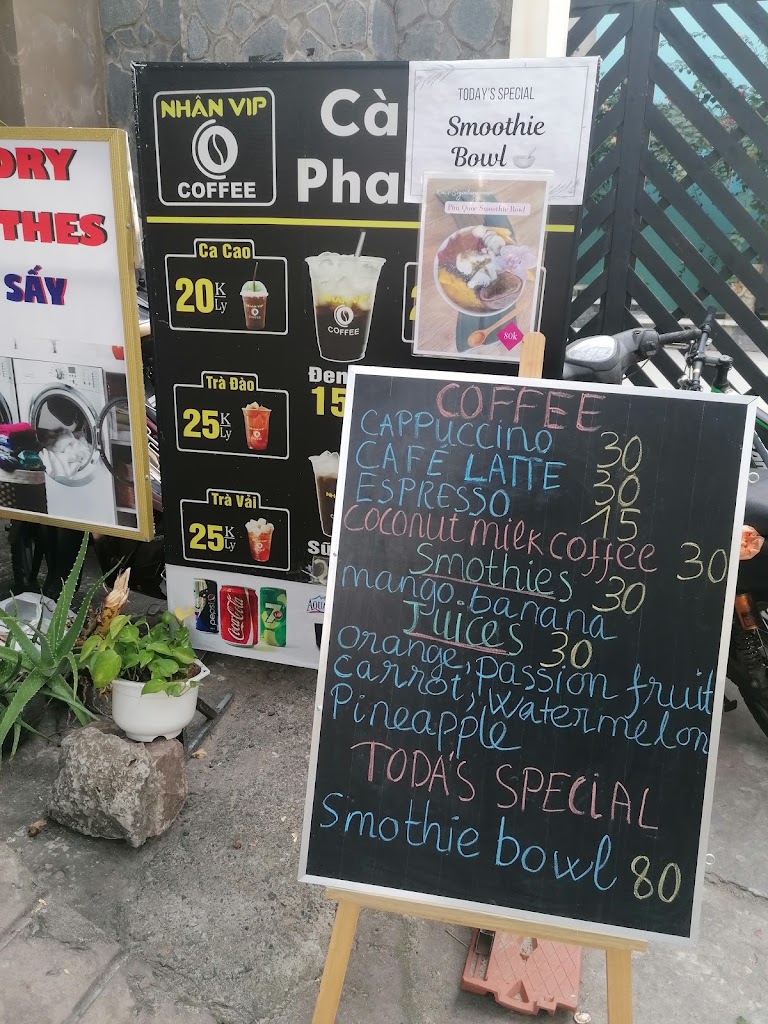 DRY
THES
SẤY
NHÂN VIP
COFFEE
Cà
Pha
TODAY'S SPECIAL
Smoothie
Bowl
Phu Quoc Smoothie Bowl
80k
Ca Cao
20 K
Ly
NHÂN VIP
COFFEE
Đen
15
Trà Đào
25 K
Ly
Trà Vải
25 K
Ly
Sữ
pepsi
Coca-Cola
7
AQUA
COFFEE
CAPPUCCINO 30
CAFÉ LATTE 30
ESPRESSO 15
COCONUT MILK COFFEE 30
Smothies 30
mango. banana
Juices 30
orange, passion fruit
carrot, watermelon
Pineapple
TODA'S SPECIAL
Smothie bowl 80